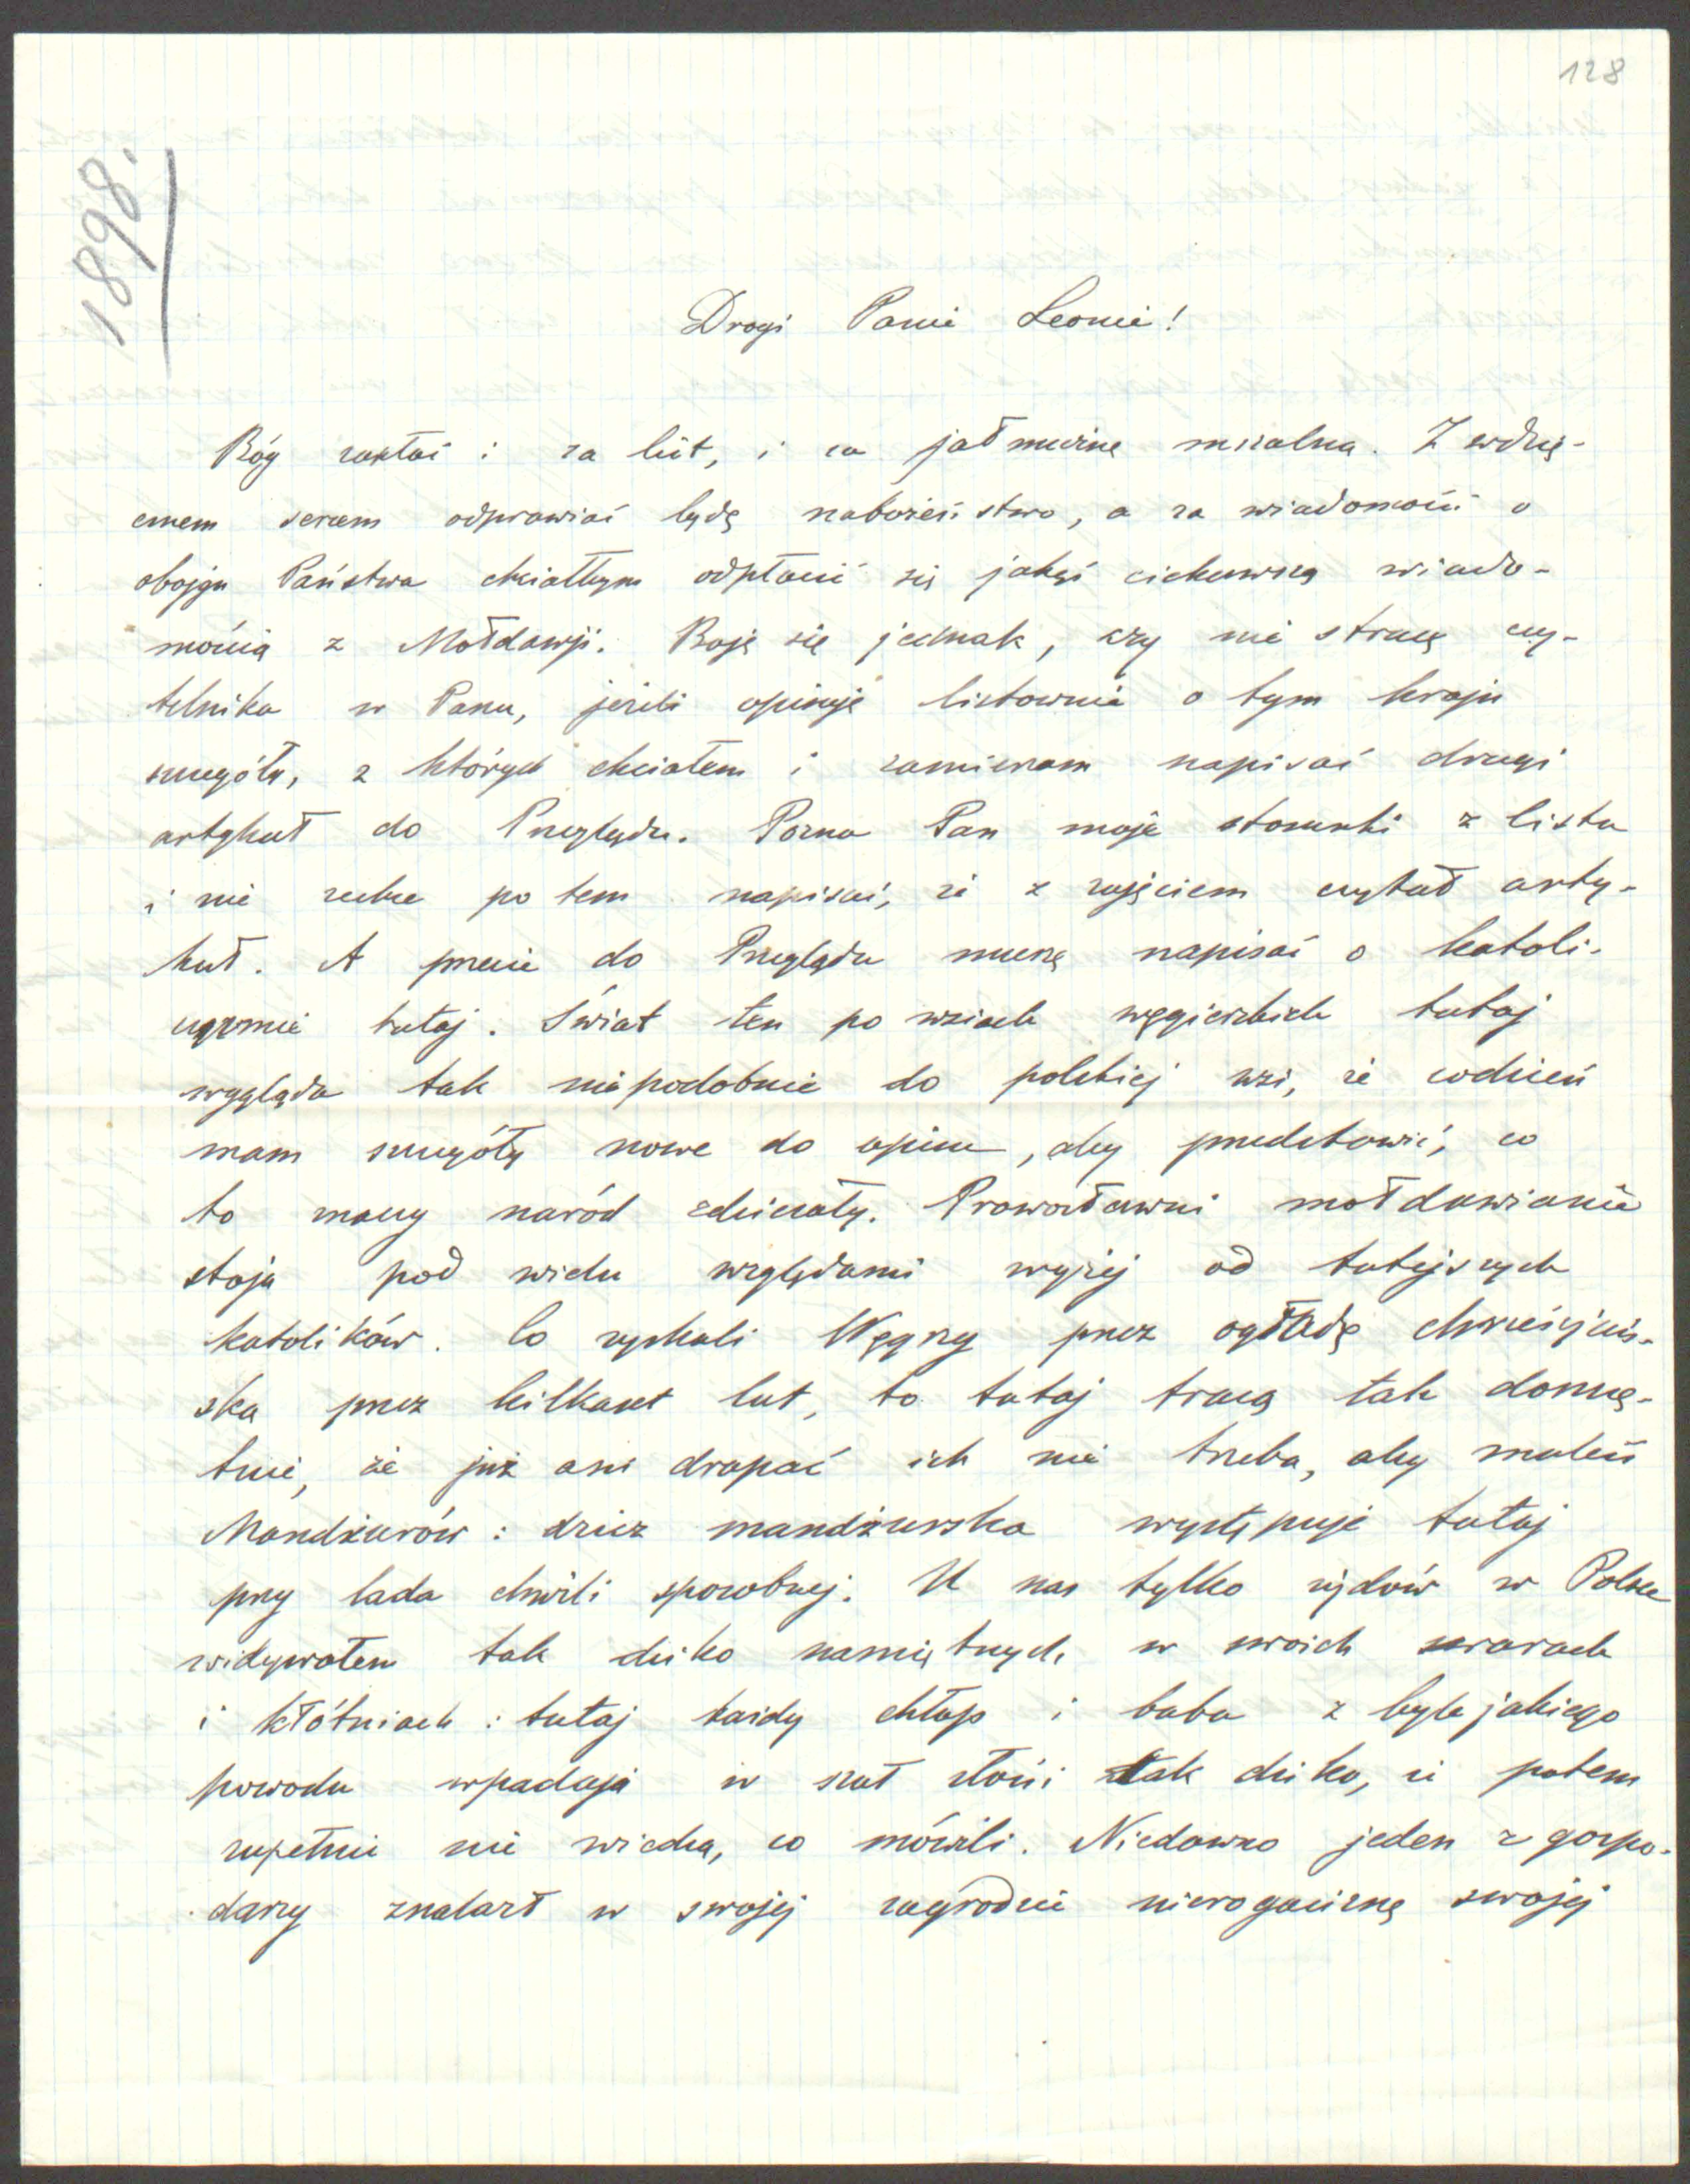 128
1898.
Drogi Panie Leonie!
Bóg zapłać i za list, i za jałmużnę mszalną. Z wdzię-
cznem sercem odprawiać będę nabożeństwo, a za wiadomość o
obojgu Państwa chciałbym odpłacić się jakąś ciekawszą wiado-
mością z Mołdawji. Boję się jednak, czy nie stracę czy-
telnika w Panu, jeżeli opiszę listownie o tym kraju
szczegóły, z których chciałem i zamierzam napisać drugi
artykuł do Przeglądu. Pozna Pan moje stosunki z listu
i nie zechce po tem napisać, że z zajęciem czytał arty-
kuł. A przecie do Przeglądu muszę napisać o katoli-
cyzmie tutaj. Świat ten po wsiach węgierskich tutaj
wygląda tak niepodobnie do polskiej wsi, że codzień
mam szczegóły nowe do opisu, aby przedstawić, co
to znaczy naród zdziczały. Prawosławni mołdawianie
stoją pod wielu względami wyżej od tutejszych
katolików. Co zyskali Węgrzy przez ogładę chrześcijań-
ską przez kilkaset lat, to tutaj tracą tak doszczę-
tnie, że już ani drapać ich nie trzeba, aby znaleść
Mandżurów: dzicz mandżurska występuje tutaj
przy lada chwili sposobnej. U nas tylko żydów w Polsce
widywałem tak dziko namiętnych w swoich swarach
i kłótniach: tutaj każdy chłop i baba z byle jakiego
powodu wpadają w szał złości tak dziko, że potem
zupełnie nie wiedzą, co mówili. Niedawno jeden z gospo-
darzy znalazł w swojej zagrodzie nierogaciznę swojej